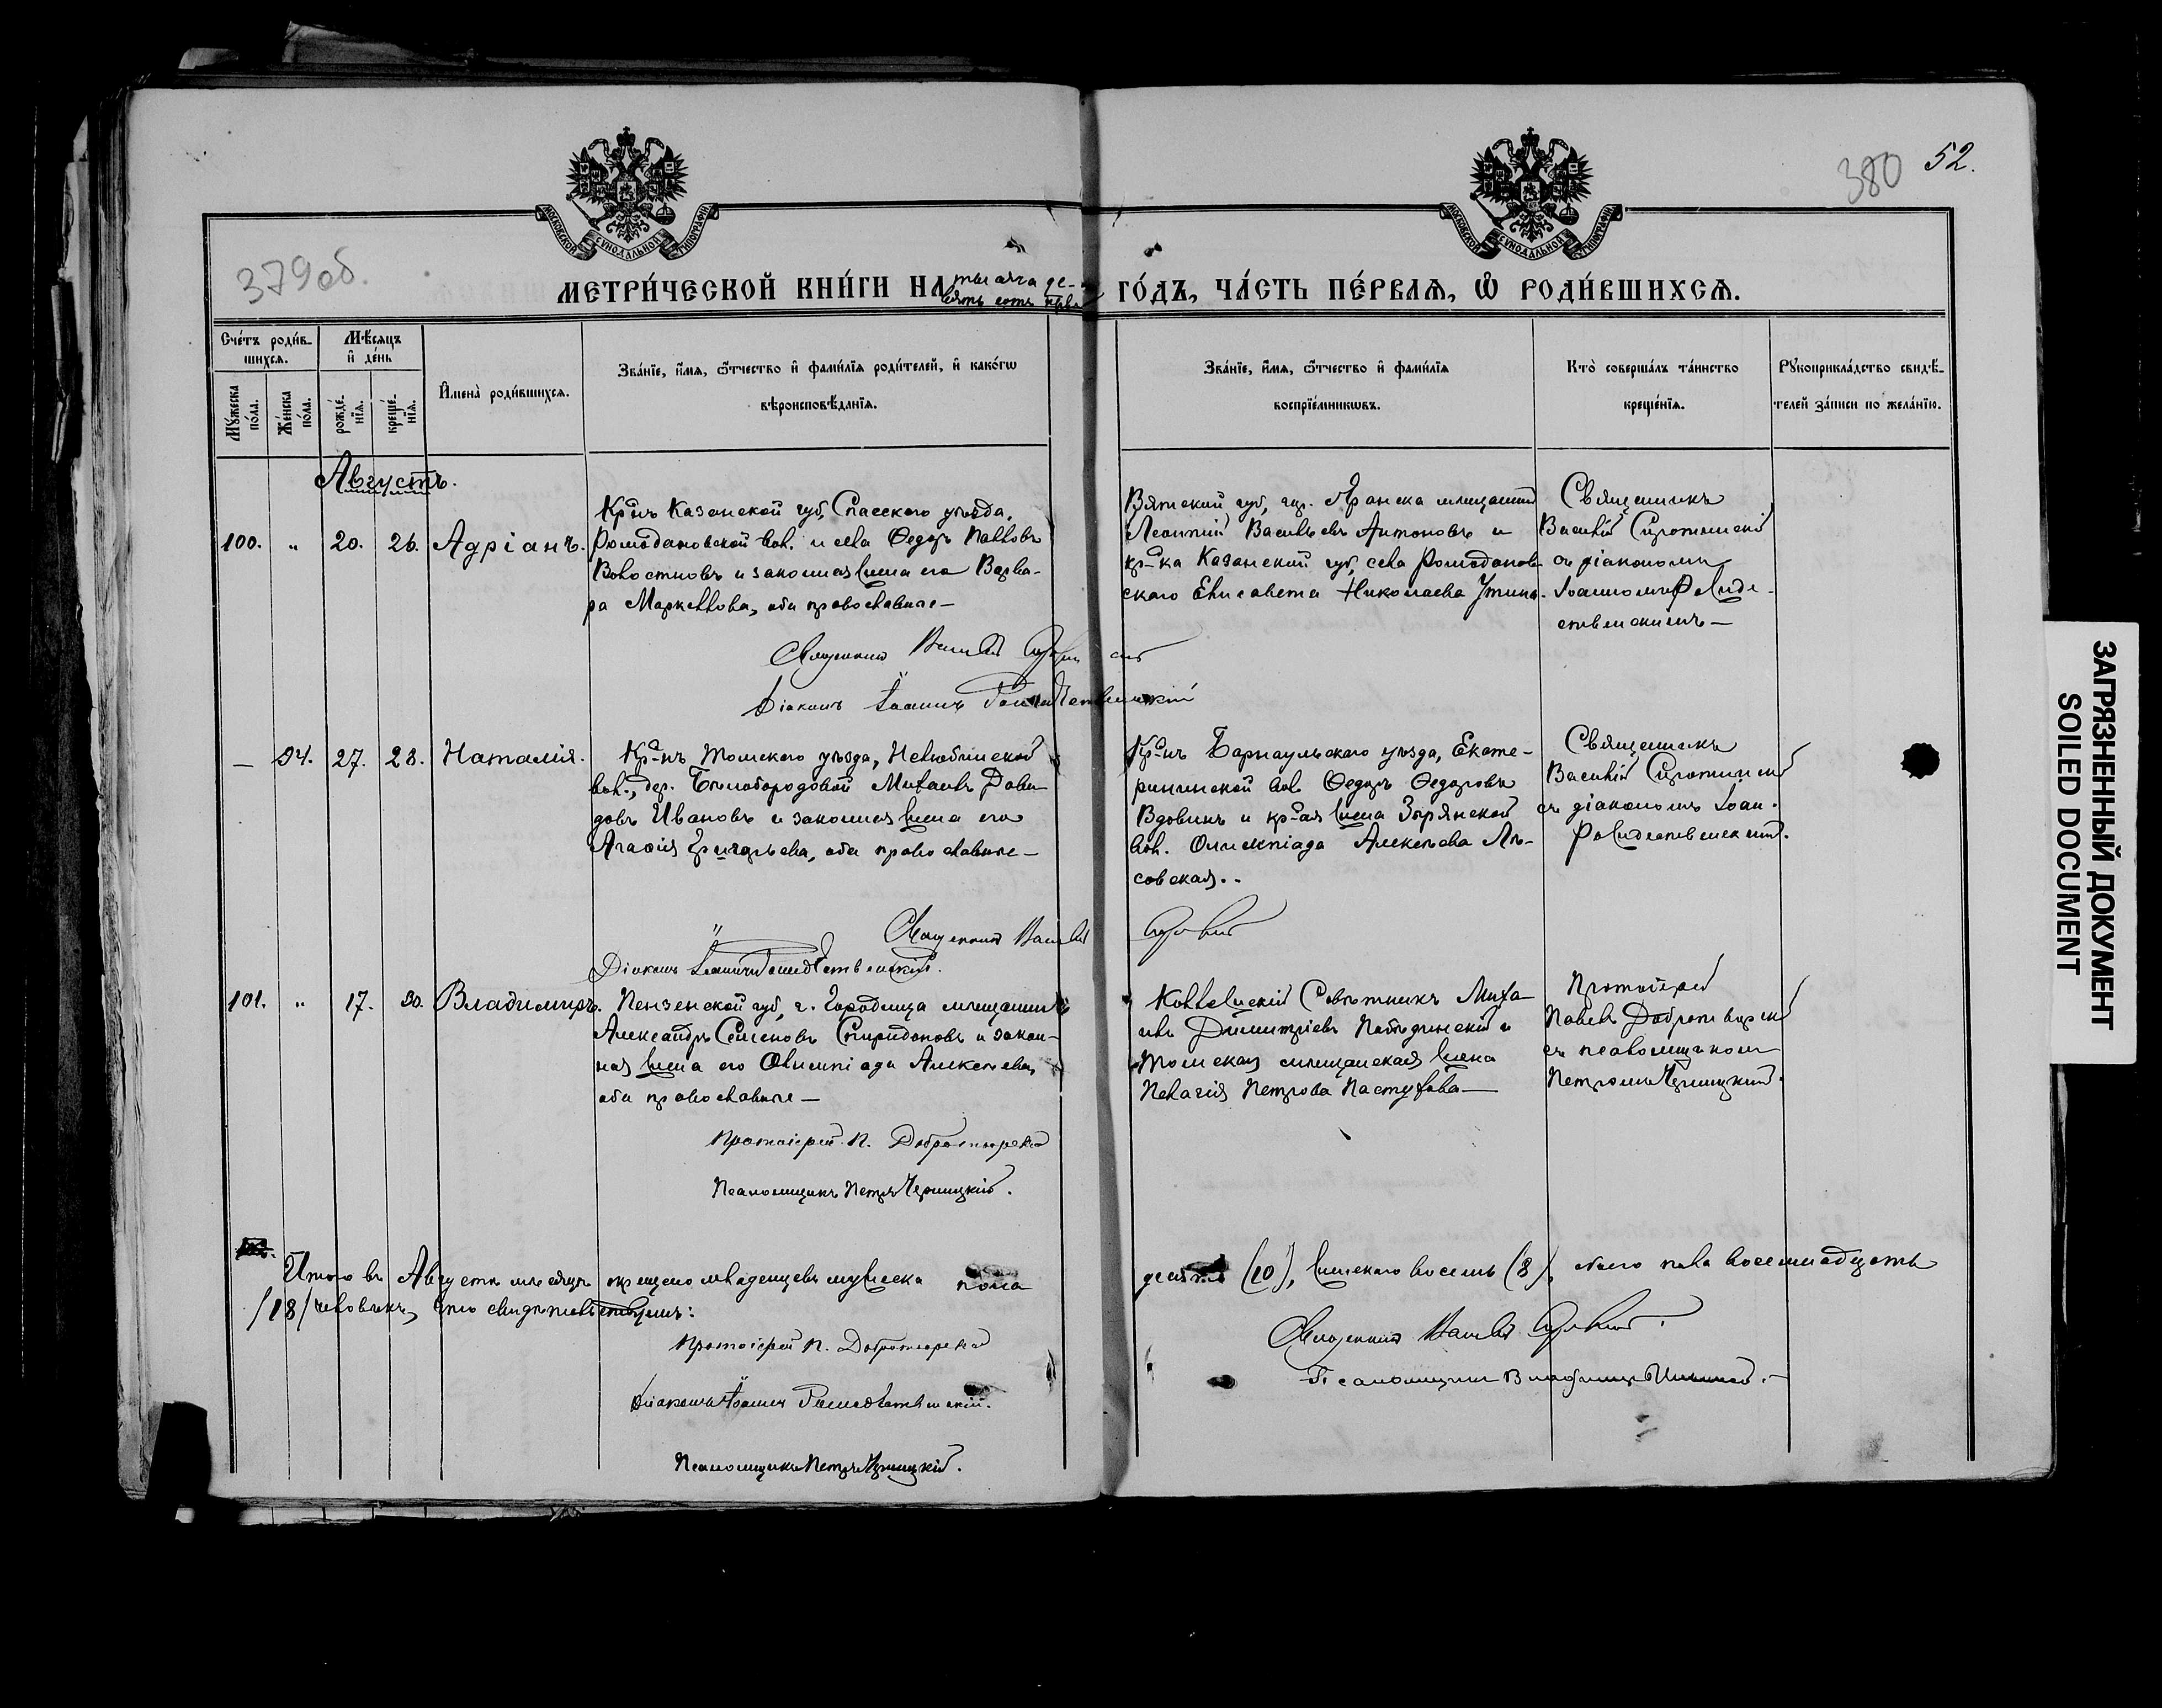 379об.
380
52.
МОСКОВСКОЙ СѴНОДАЛЬНОЙ ТИПОГРАФІИ
МОСКОВСКОЙ СѴНОДАЛЬНОЙ ТИПОГРАФІИ
МЕТРИ́ЧЕСКОЙ КНИ́ГИ НА тысяча де-
вять сотъ
ГО́ДЪ, ЧА́СТЬ ПЕ́РВАѦ, Ѡ҆ РОДИ́ВШИХСѦ.
Сче́тъ роди́в-
шихсѧ.
Мѣ́сяцъ
и҆ де́нь
Мꙋ́жеска
по́ла.
Же́нска
по́ла.
рожде́-
нїѧ.
креще́-
нїѧ.
И҆мена̀ роди́вшихсѧ.
Зва́нїе, и҆́мѧ, ѻ҆́тчество и҆ фами́лїѧ роди́телей, и҆ како́гѡ
вѣроисповѣ́данїѧ.
Зва́нїе, и҆́мѧ, ѻ҆́тчество и҆ фами́лїѧ
воспрїе́мникѡвъ.
Кто̀ соверша́лъ та́инство
креще́нїѧ.
Рꙋкоприкла́дство свидѣ́-
телей за́писи по жела́нїю.
Августъ.
100. " 20. 26. Адріанъ.
Кр-нъ Казанской губ, Спасского уѣзда,
Ромодановской вол. и села Ѳедоръ Павловъ
Волостновъ и законная жена его Варва-
ра Маркеллова, оба православные—
Вятской губ, гор. Яранска мѣщанинъ
Леонтій Васильевъ Антоновъ и
кр-ка Казанской губ, села Ромоданов-
скаго Елисавета Николаева
Священникъ
Василій Сиротинскій
съ діакономъ
Іоанномъ Рожде-
ственскимъ—
Священникъ Василій
Діаконъ Іоаннъ Рождественскій
— 94. 27. 28. Наталія.
Кр-нъ Томскаго уѣзда, Нелюбинской
вол., дер. Бѣлобородовой Михаилъ Давы-
довъ Ивановъ и законная жена его
Агаѳія Григорьева, оба православные—
Кр-нъ Барнаульскаго уѣзда, Екате-
рининской вол. Ѳедоръ Ѳедоровъ
Вдовинъ и кр-ая жена Зырянской
вол. Олимпіада Алексѣева Лѣ-
совская..
Священникъ
Василій Сиротинскій
съ діакономъ Іоан.
Рождественскимъ.
Священникъ Василій
Діаконъ Іоаннъ Рождественскій.
101. " 17. 30. Владимиръ.
Пензенской губ, г. Городища мѣщанинъ
Александръ Семеновъ Спиридоновъ и закон-
ная жена его Олимпіада Алексѣева,
оба православные—
Коллежскій Совѣтникъ Миха-
илъ Димитріевъ Побѣдинскій и
Томская мѣщанская жена
Пелагія Петрова Пастухова—
Протоіерей
Павелъ Добротворскій
съ псаломщикомъ
Петромъ Черницкимъ.
Протоіерей П. Добротворскій
Псаломщикъ Петръ Черницкій.
Итого въ Августѣ мѣсяцѣ крещено младенцевъ мужеска пола
десять (10), женскаго восемь (8), обоего пола восемнадцать
/18/ человѣкъ, что свидѣтельствуемъ:
Протоіерей П. Добротворскій
Священникъ Василій
Діаконъ Іоаннъ Рождественскій.
Псаломщикъ Владимиръ
Псаломщикъ Петръ Черницкій.
ЗАГРЯЗНЕННЫЙ ДОКУМЕНТ
SOILED DOCUMENT